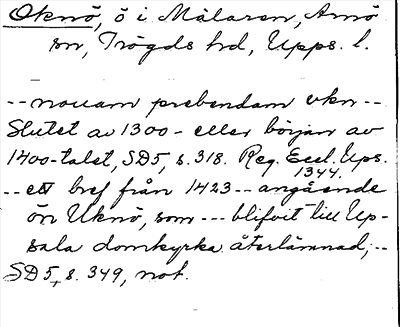 Oknö, ö i Mälaren, Arnö
sn, Trögds hd, Upps. l.
-- nouam prebendam vkn --
Slutet av 1300- eller början av
1400-talet, SD5, s. 318. Reg. Eccl. Ups.
1344.
-- ett bref från 1423 -- angående
ön Uknö, som --- blifvit till Up-
sala domkyrka återlämnad, --
SD5, s. 349, not.